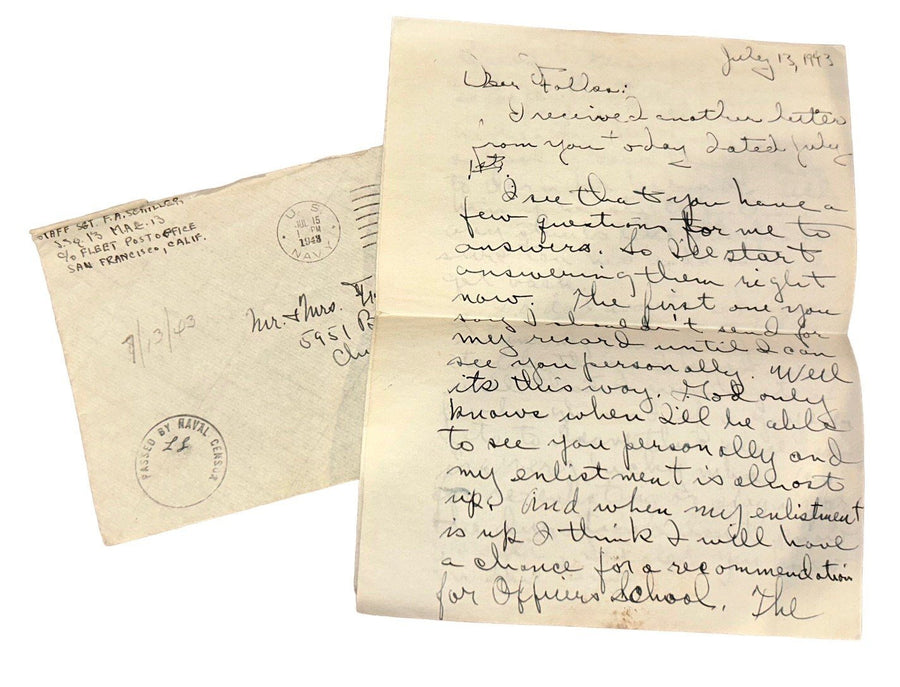 STAFF SGT. F. A. SCHILLER
SSq. 13 MAG. 13
c/o FLEET POST OFFICE
SAN FRANCISCO, CALIF.
U.S.
JUL 15
PM
1943
NAVY
Mr. & Mrs.
5951
7/13/43
PASSED BY NAVAL CENSOR
July 13, 1943
Dear Folks:
I received another letter
from you today dated July
1st.
I see that you have a
few questions for me to
answers. So I'll start
answering them right
now. The first one you
say I shouldn't send for
my record until I can
see you personally. Well
its this way, God only
knows when I'll be able
to see you personally and
my enlistment is almost
up. And when my enlistment
is up I think I will have
a chance for a recommendation
for Officers School. The